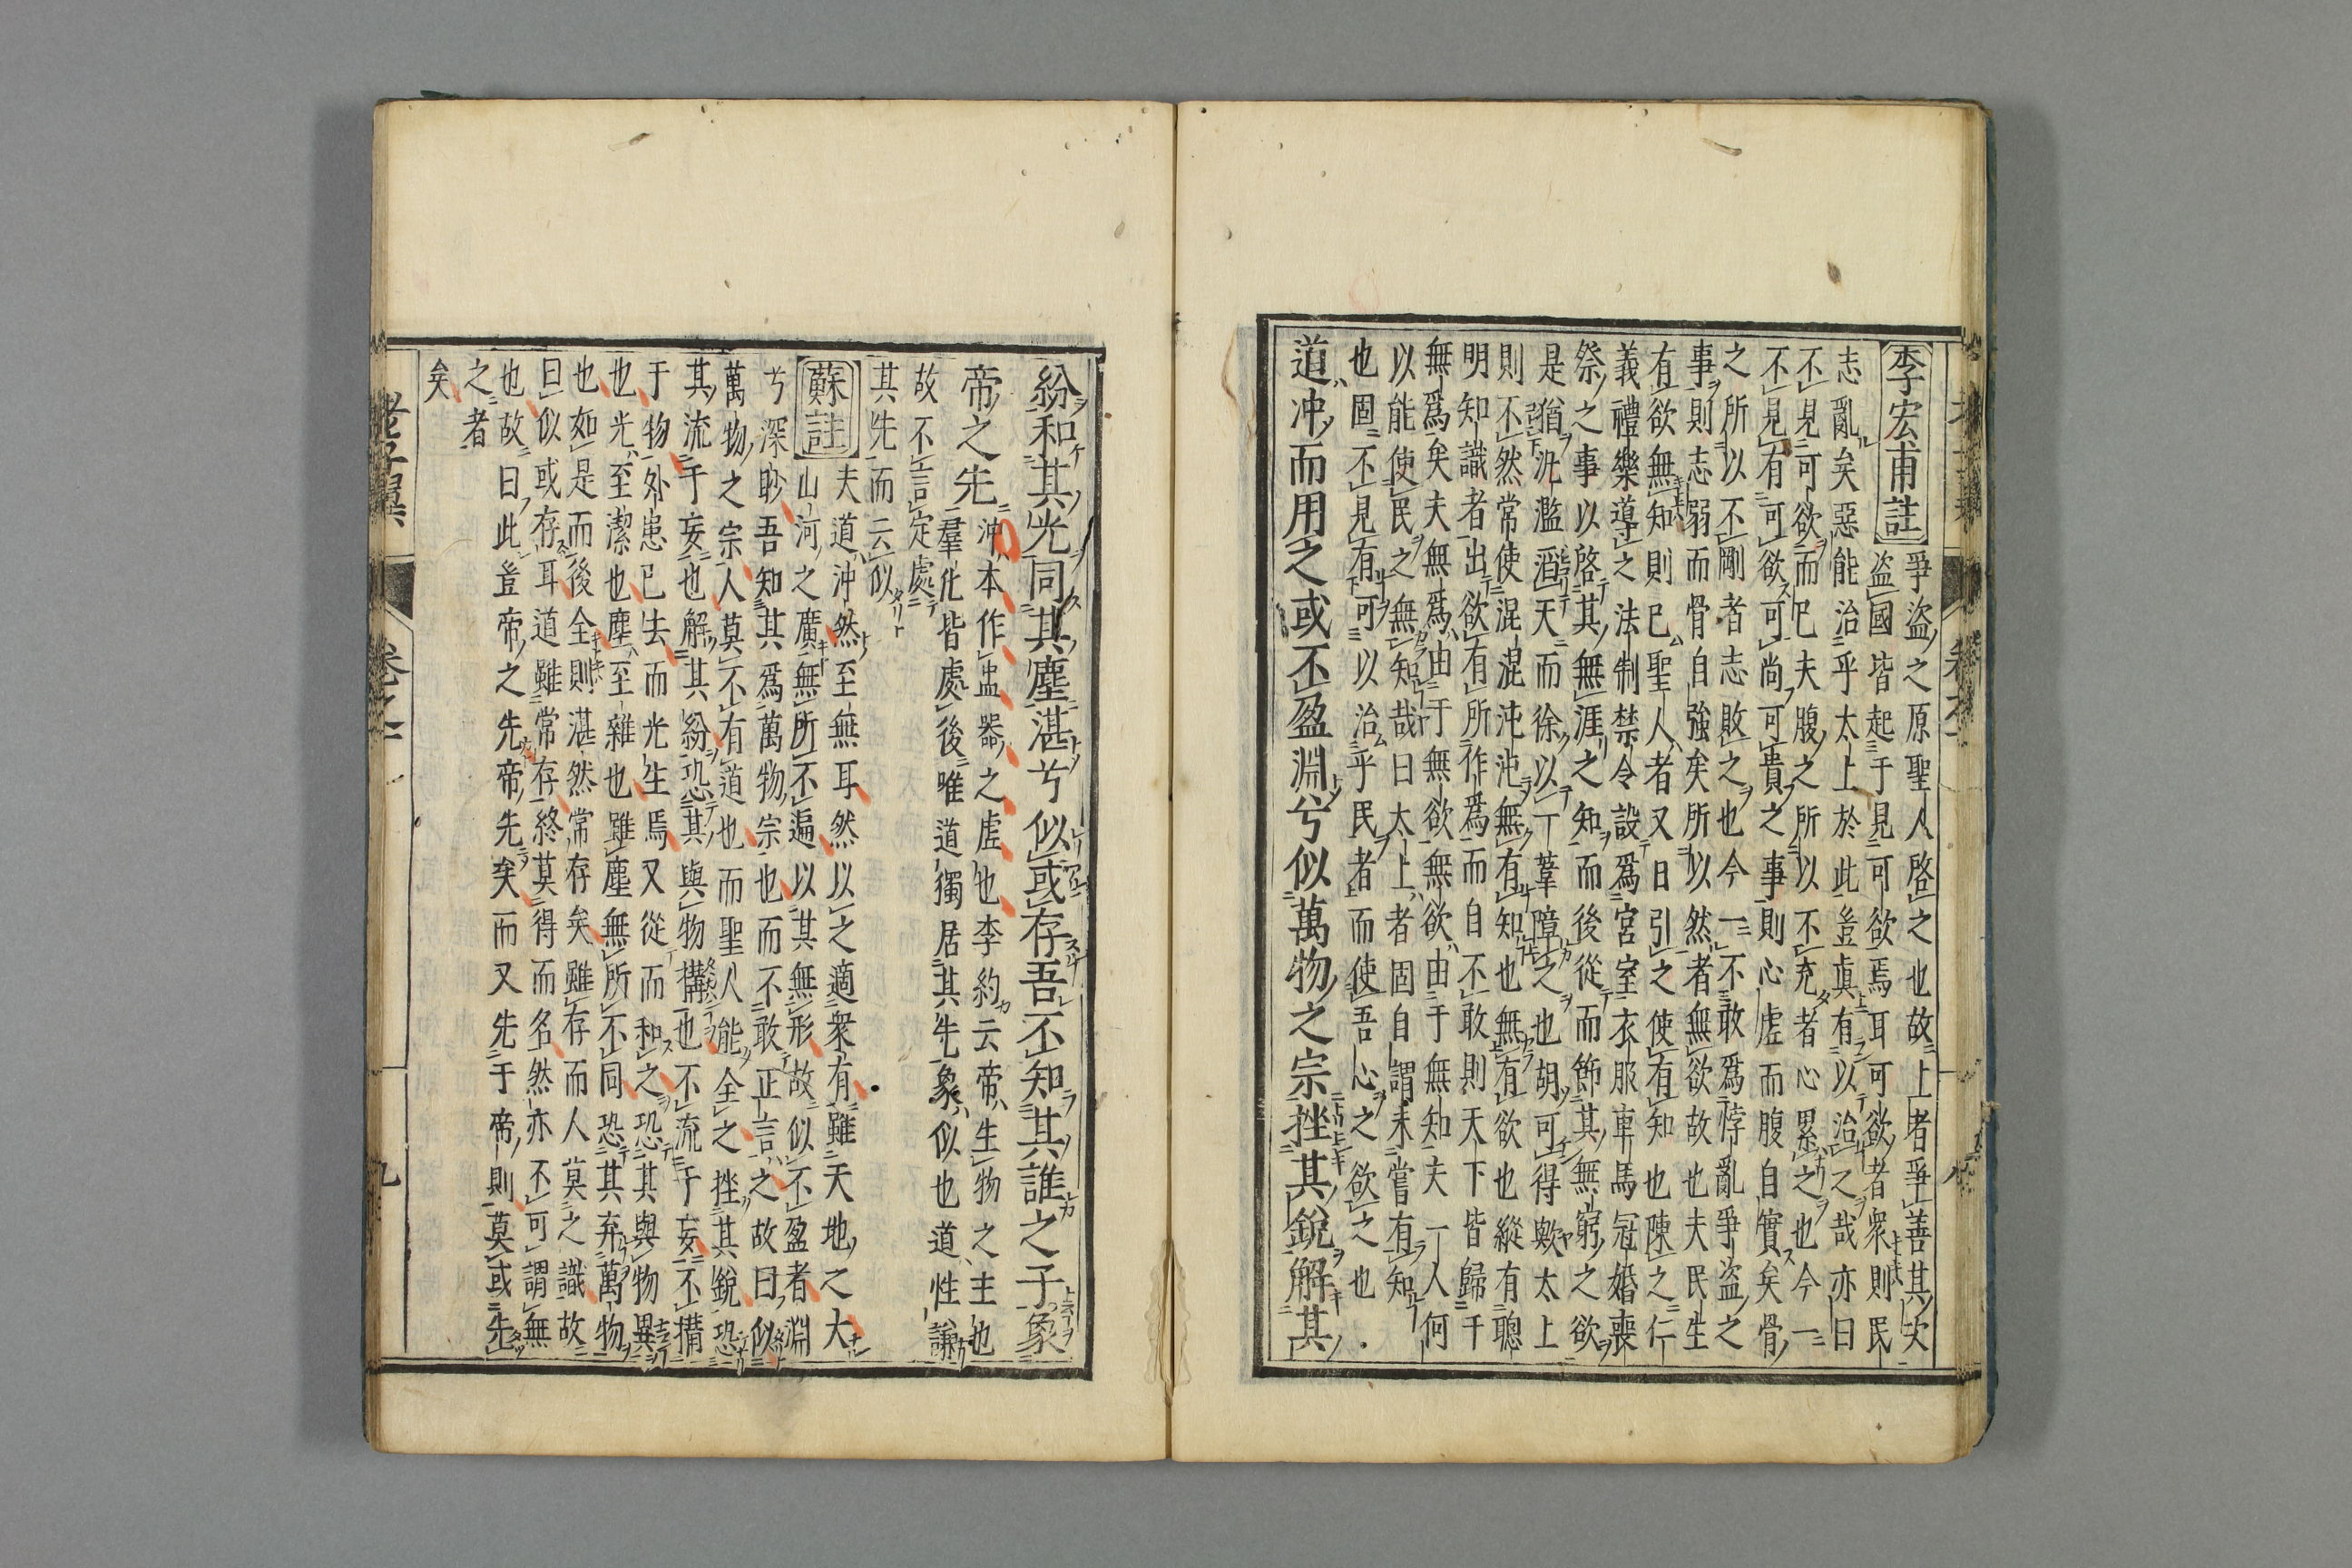 李宏甫註
爭盜之原聖人啓之也故上者爭善其次
盜國皆起于見可欲焉耳可欲者衆則民
志亂矣惡能治乎太上於此豈真有以治之哉亦曰
不見可欲而已夫腹之所以不充者心累之也今一
不見有可欲可尚可貴之事則心虛而腹自實矣骨
之所以不剛者志敗之也今一不敢爲悖亂爭盜之
事則志弱而骨自強矣所以然者無欲故也夫民生
有欲無知則已聖人者又日引之使有知也陳之仁
義禮樂導之法制禁令設爲宮室衣服車馬冠婚喪
祭之事以啓其無涯之知而後從而飾其無窮之欲
是猶汎濫滔天而徐以一葦障之也胡可得歟太上
則不然常使混混沌沌無有知也無有欲也縱有聰
明知識者出欲有所作爲而自不敢則天下皆歸于
無爲矣夫無爲由于無欲無欲由于無知夫一人何
以能使民之無知哉曰太上者固自謂未嘗有知
也固不見有可以治乎民者而使吾心之欲之也
道冲而用之或不盈淵兮似萬物之宗挫其銳解其
紛和其光同其塵湛兮似或存吾不知其誰之子象
帝之先
沖本作盅器之虛也李約云帝生物之主也
羣化皆處後唯道獨居其先象似也道性謙
故不言定處
其先而云似
蘇註
夫道沖然至無耳然以之適衆有雖天地之大
山河之廣無所不遍以其無形故似不盈者淵
兮深眇吾知其爲萬物宗也而不敢正言之故曰似
萬物之宗人莫不有道也而聖人能全之挫其銳恐
其流于妄也解其紛恐其與物構也不流于妄不搆
于物外患已去而光生焉又從而和之恐其與物異
也光至潔也塵至雜也雖塵無所不同恐其弃萬物
也如是而後全則湛然常存矣雖存而人莫之識故
曰似或存耳道雖常存終莫得而名然亦不可謂無
也故曰此豈帝之先帝先矣而又先于帝則莫或先
之者
矣
老子翼
卷之一
九